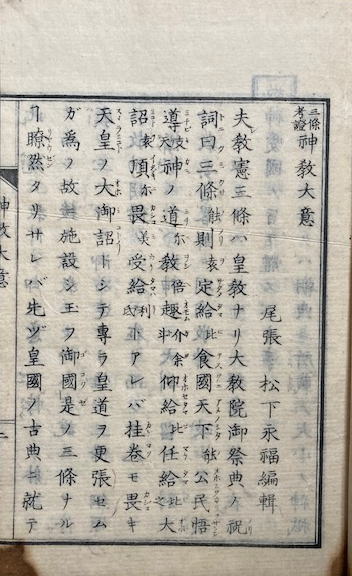 三條考證 神教大意
尾張 松下永福編輯
夫教憲三條ハ皇教ナリ大教院御祭典ノ祝
詞曰三條能則亥定給比食國天下能公民悟
導支神ノ道尓教倍趣介余斗仰給比任給比之大
詔亥頂尓畏美受給利氐トアレバ挂卷モ畏キ
天皇ノ大御詔トシテ專ラ皇道ヲ更張セム
ガ為ノ故ニ施設シ玉フ御國是ノ三條ナル
ヿ瞭然タリサレバ先ヅ皇國ノ古典ニ就テ
神教大意